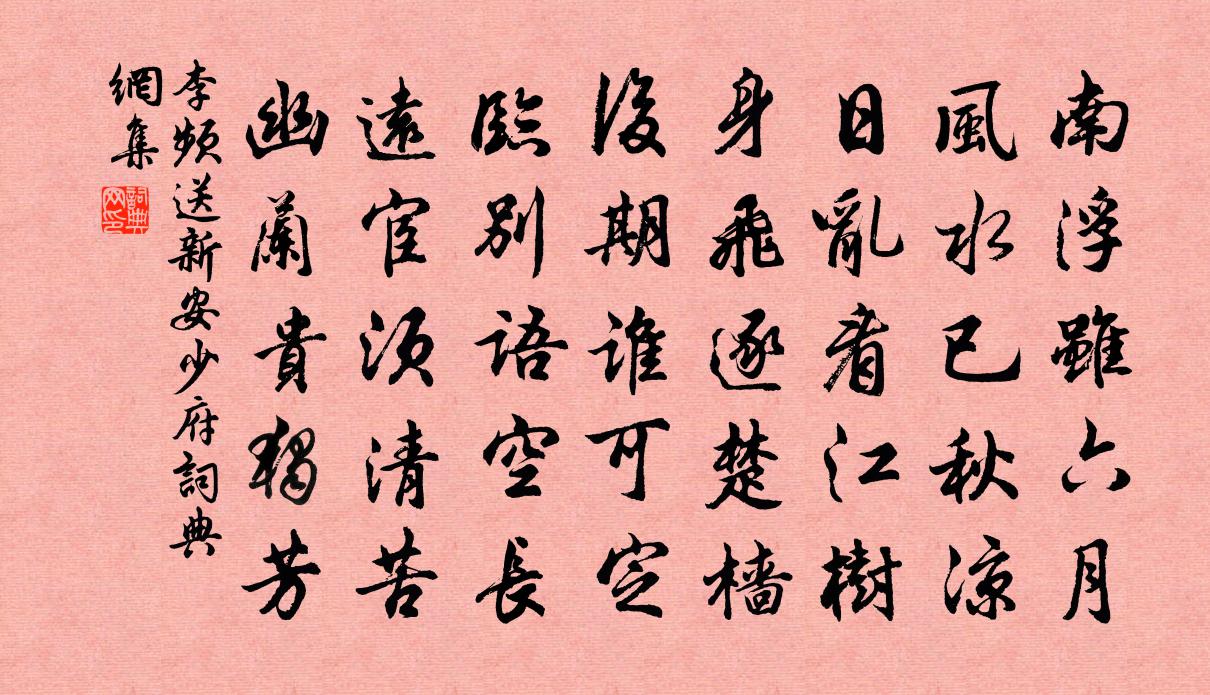 南浮雖六月
風水已秋涼
日亂看江樹
身飛逐楚檣
後期誰可定
臨別語空長
遠宦須清苦
幽蘭貴獨芳
李頻送新安少府詞典
網集
詞典網印